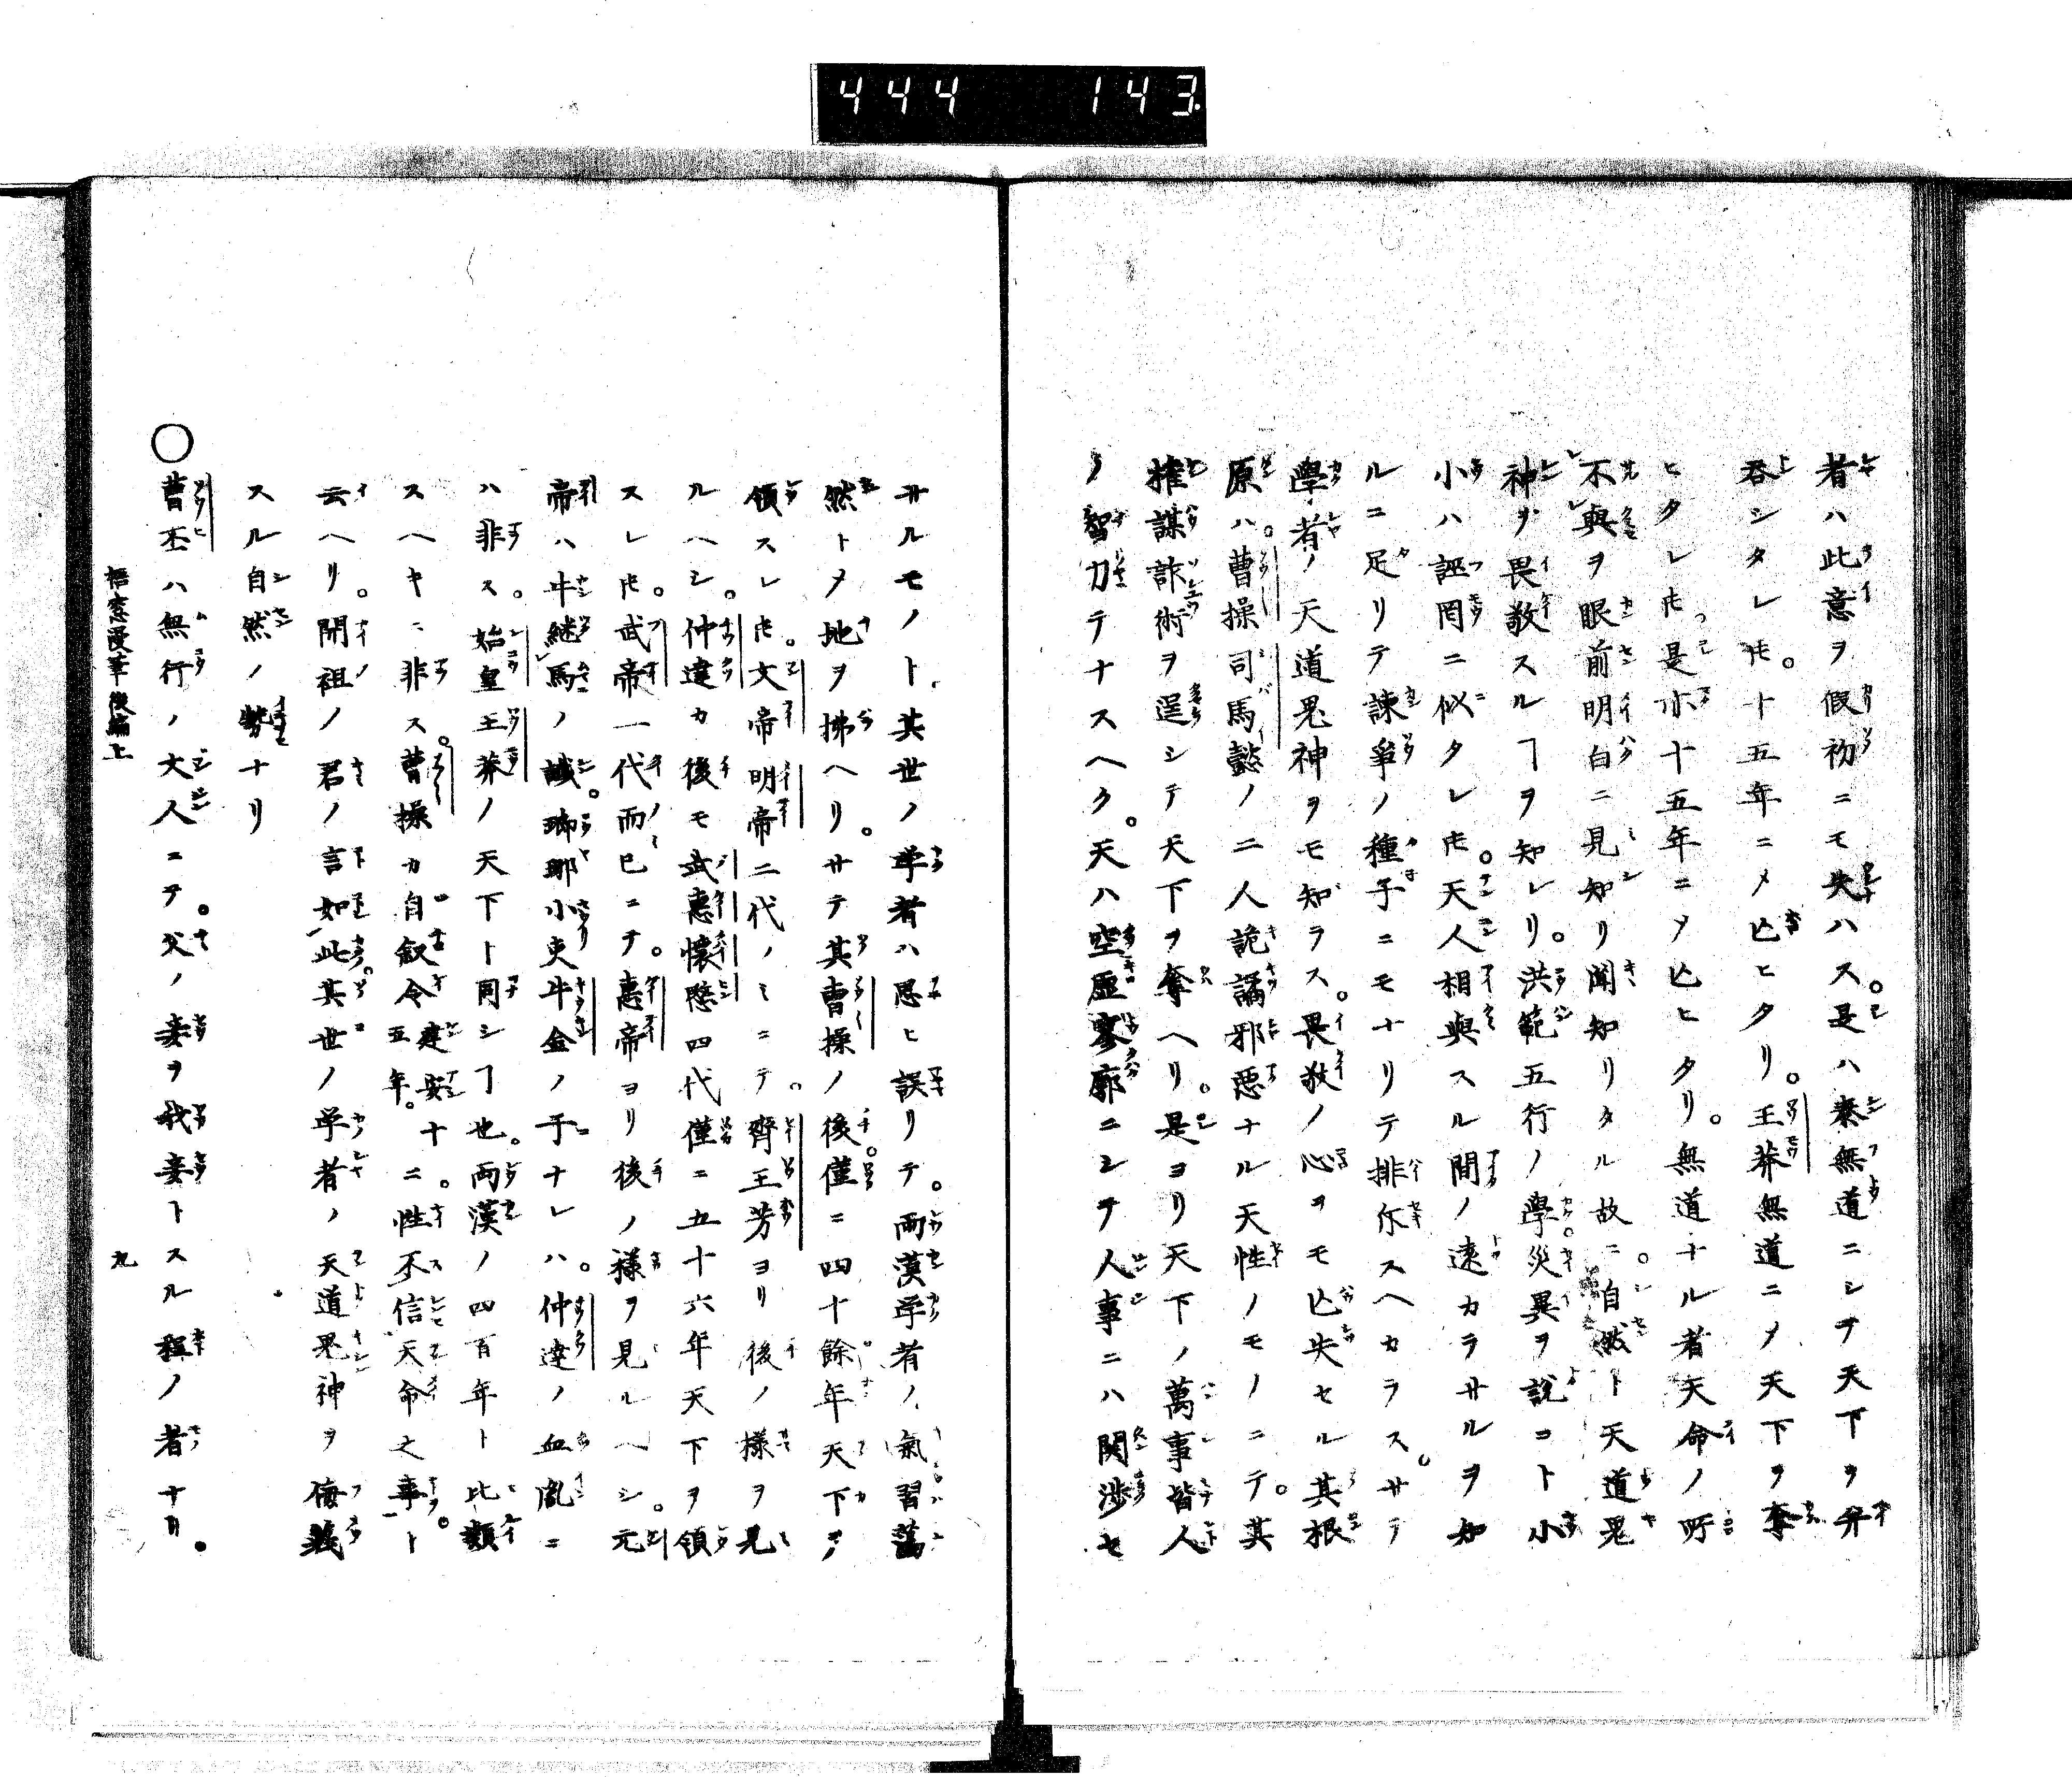 444 143
者ハ此意ヲ假初ニモ失ハス。是ハ秦無道ニシテ天下ヲ并
呑シタレ𪜈。卜五年ニメ亡ヒタリ。王莽無道ニメ天下ヲ奪
ヒタレ𪜈。是亦十五年ニメ亡ヒタリ。無道ナル者天命ノ所
不與ヲ眼前明白ニ見知リ聞知リタル故ニ。自然ト天道鬼
神ヲ畏敬スルヿヲ知レリ。洪範五行ノ學。災異ヲ説コト小
小ハ誣罔ニ似タレ𪜈。天人相與スル間ノ遠カラサルヲ知
ルニ足リテ諫爭ノ種子ニモナリテ排斥スヘカラス。サテ
學者ノ天道鬼神ヲモ知ラス。畏敬ノ心ヲモ亡失セル其根
原ハ。曹操司馬懿ノ二人詭譎邪惡ナル天性ノモノニテ。其
権謀詐術ヲ逞シテ天下ヲ奪ヘリ。是ヨリ天下ノ萬事皆人
ノ智力テナスヘク。天ハ空虚寥廓ニシテ人事ニハ関渉セ
サルモノト其世ノ学者ハ思ヒ誤リテ。両漢学者ノ氣習蕩
然トメ地ヲ拂ヘリ。サテ其曹操ノ後。僅ニ四十餘年天下ヲ
領スレ𪜈。文帝明帝二代ノミニテ。齊王芳ヨリ後ノ様ヲ見
ルヘシ。仲達カ後モ武惠懷愍四代僅ニ五十六年天下ヲ領
スレ𪜈。武帝一代而已ニテ。惠帝ヨリ後ノ様ヲ見ルヘシ。元
帝ハ牛継馬ノ讖。瑯琊小吏牛金ノ子ナレハ。仲達ノ血胤ニ
ハ非ス。始皇王莽ノ天下ト同シヿ也。両漢ノ四百年ト比類
スヘキニ非ス。曹操カ自叙令建安十五年。ニ。性不信天命之事。ト
云ヘリ。開祖ノ君ノ言如此。其世ノ学者ノ天道鬼神ヲ侮蔑
スル自然ノ勢ナリ
○曹丕ハ無行ノ文人ニテ。父ノ妾ヲ我妾トスル程ノ者ナリ。
梧窓漫筆後編上 九